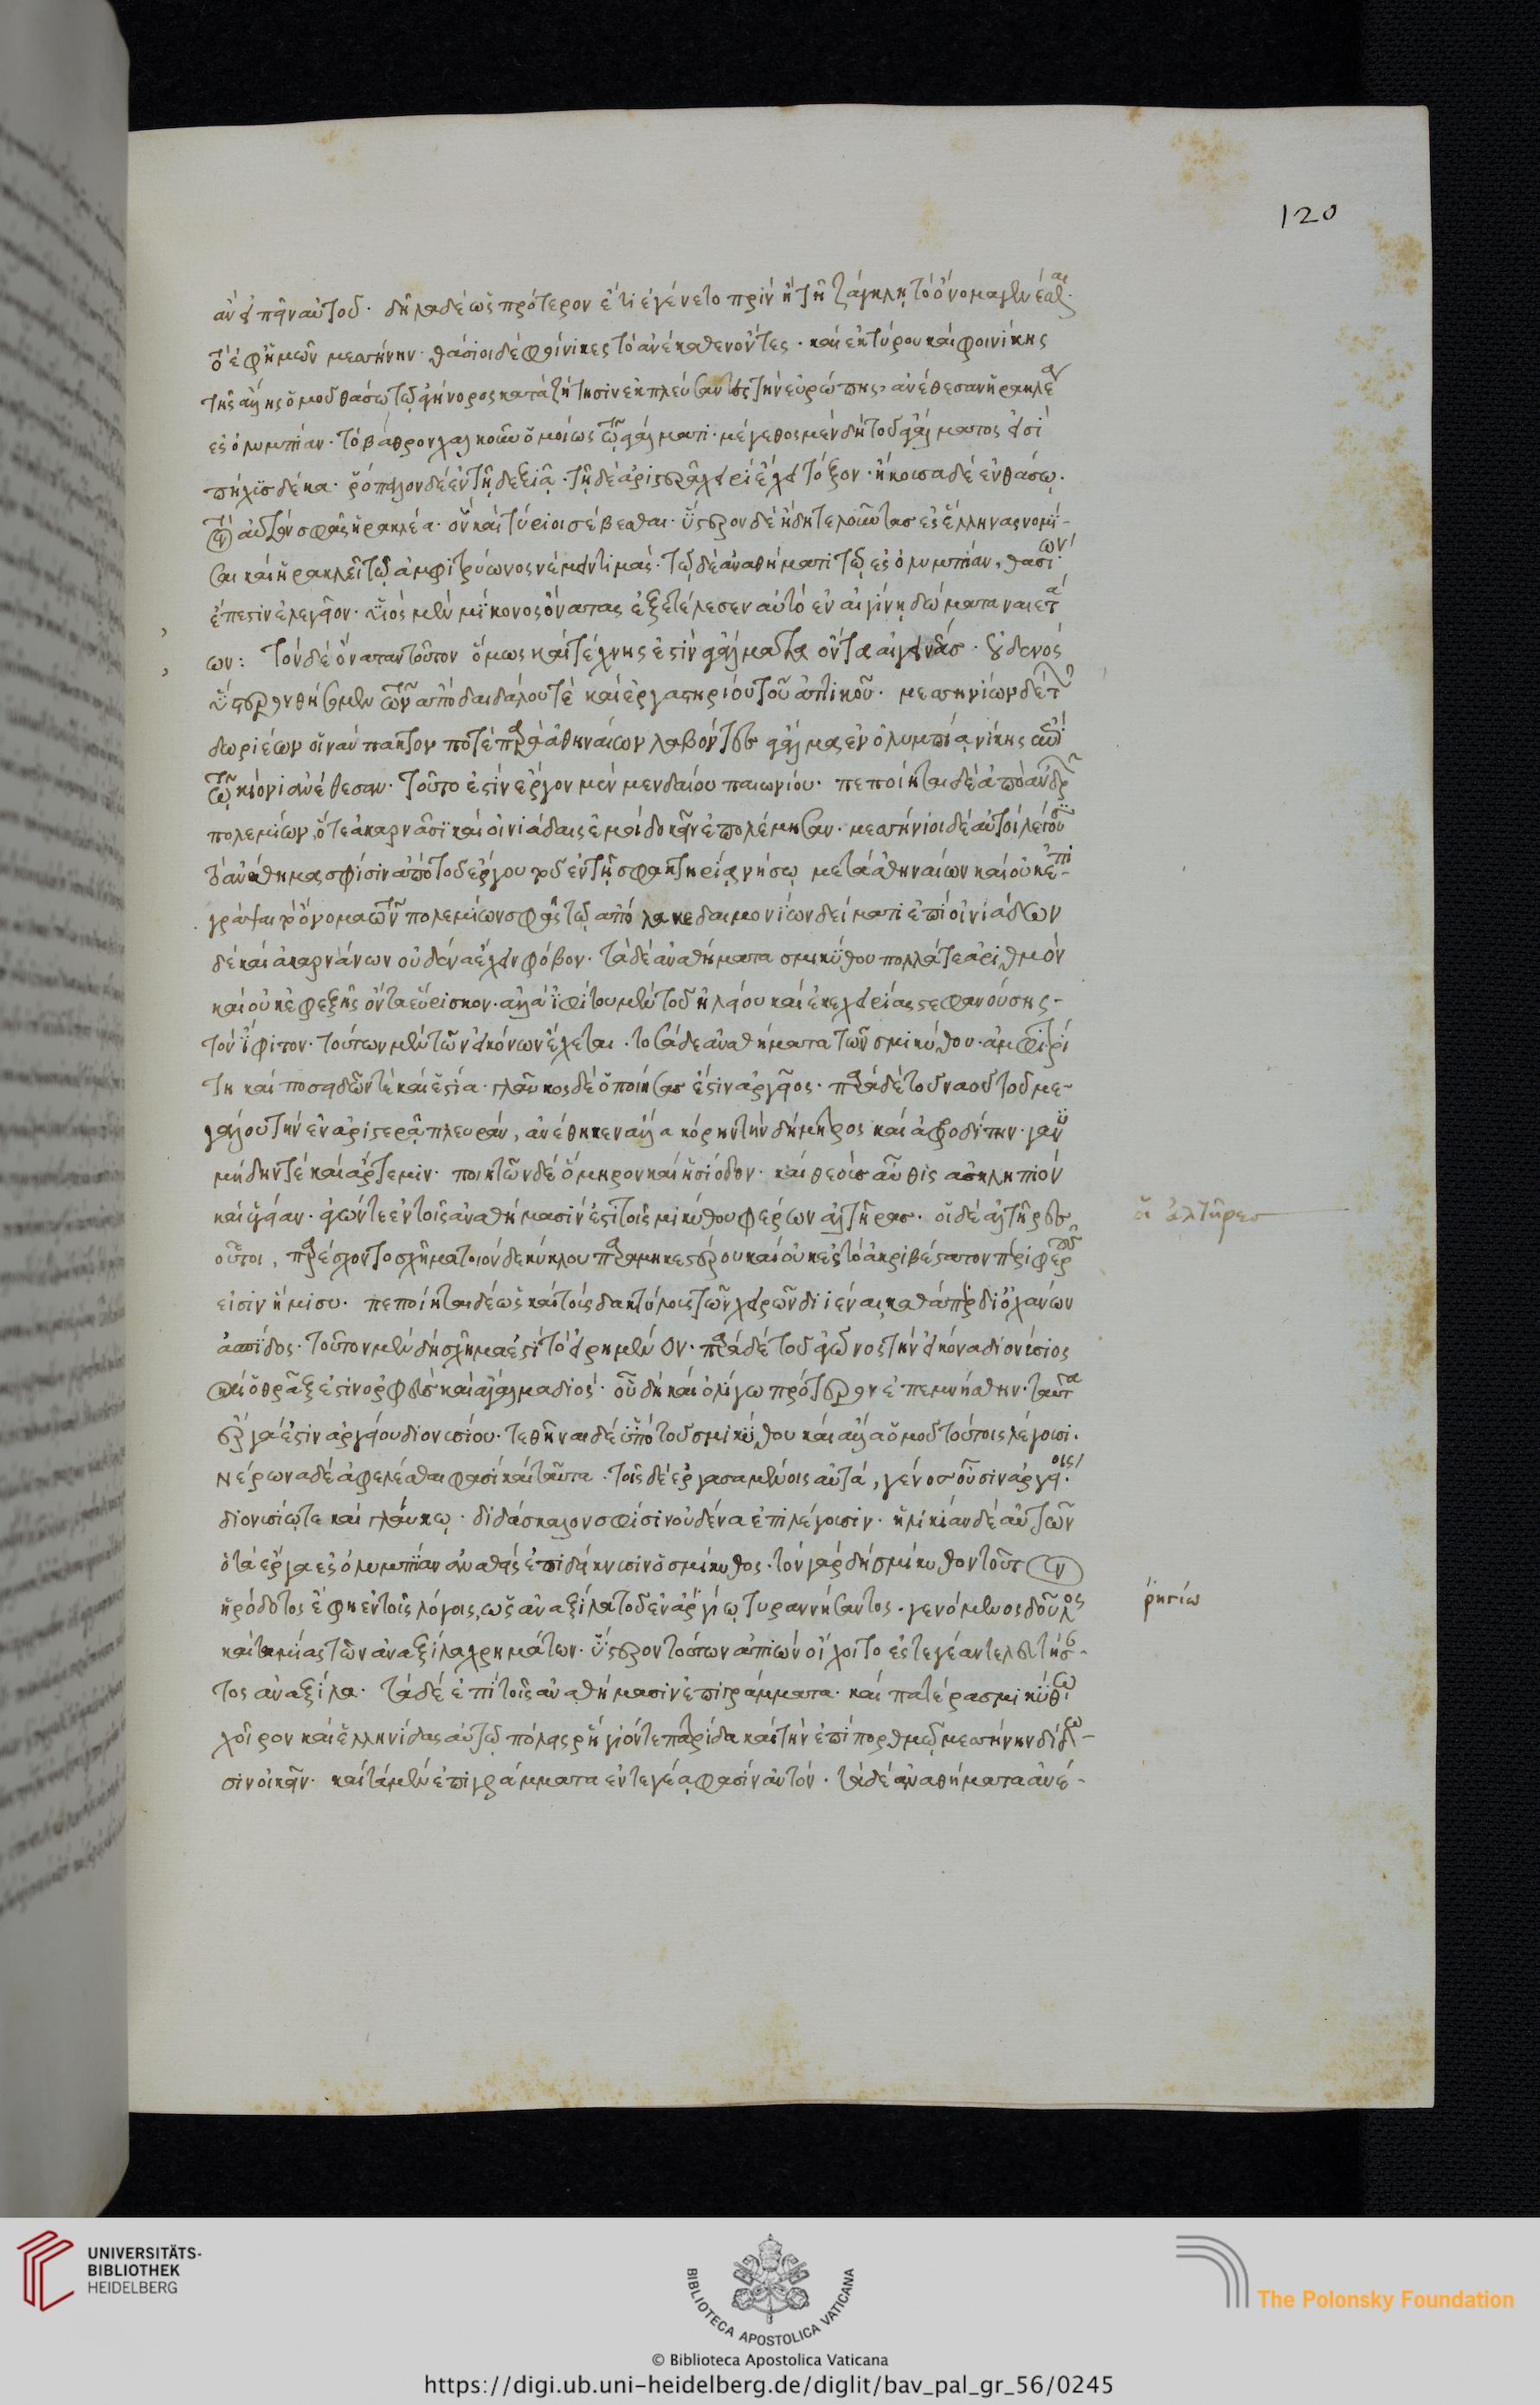 ἀνείπειν αὐτοῦ. δῆλα δὲ ὡς πρότερον ἔτι ἐγένετο πρὶν ἢ τῇ ζάγκλῃ τὸ ὄνομα γενέσθαι
τὸ ἐφ' ἡμῶν μεσσήνην. θάσιοι δὲ φοίνικες τὸ ἀνέκαθεν ὄντες. καὶ ἐκ τύρου καὶ φοινίκης
τῆς ἄλλης ὁμοῦ θάσῳ τῷ ἀγήνορος κατὰ ζήτησιν ἐκπλεύσαντες τὴν εὐρώπης, ἀνέθεσαν ἡρακλέαν
ἐς ὀλυμπίαν. τὸ βάθρον χαλκοῦν ὁμοίως τῷ ἀγάλματι. μέγεθος μὲν δὴ τοῦ ἀγάλματος εἰσὶ
πήχεις δέκα. ῥόπαλον δὲ ἐν τῇ δεξιᾷ. τῇ δὲ ἀριστερᾷ χειρὶ ἔχει τόξον. ἤκουσα δὲ ἐν θάσῳ.
τὸν αὐτόν σφᾶς ἡρακλέα. ὃν καὶ τύριοι σέβεσθαι. ὕστερον δὲ ἤδη τελοῦντας ἐς ἕλληνας νομί-
σαι καὶ ἡρακλεῖ τῷ ἀμφιτρύωνος νέμειν τιμάς. τῷ δὲ ἀναθήματι τῷ ἐς ὀλυμπίαν, θασίων
ἔπεστιν ἐλεγεῖον. υἱὸς μὲν μίκονος ὀνάτας ἐξετέλεσεν αὐτὸ ἐν αἰγίνῃ δώματα ναιετά
ων: τὸν δὲ ὀνάταν τοῦτον ὅμως καὶ τέχνης ἐστὶν ἀγάλματα ὄντα αἰγιναίας. οὐδενὸς
ὕστερον θήσομεν τῶν ἀπὸ δαιδάλου τὲ καὶ ἐργαστηρίου τοῦ ἀττικοῦ. μεσσηνίων δὲ τῶν
δωριέων οἳ ναύπακτον ποτὲ παρὰ ἀθηναίων λαβόντες ἄγαλμα ἐν ὀλυμπίᾳ νίκης ἐπὶ
τῷ κίονι ἀνέθεσαν. τοῦτο ἐστὶν ἔργον μὲν μενδαίου παιωνίου. πεποίηται δὲ ἀπὸ ἀνδρῶν
πολεμίων, ὅτε ἀκαρνᾶσι καὶ οἰνιάδαις ἐμοὶ δοκεῖν ἐπολέμησαν. μεσσήνιοι δὲ αὐτοὶ λέγουσι
τὸ ἀνάθημα σφίσιν ἀπὸ τοῦ ἔργου τοῦ ἐν τῇ σφακτηρίᾳ νήσῳ μετὰ ἀθηναίων καὶ οὐκ ἐπι-
γράψαι τὸ ὄνομα τῶν πολεμίων σφᾶς τῷ ἀπὸ λακεδαιμονίων δείματι ἐπὶ οἰνιάδων
δὲ καὶ ἀκαρνάνων οὐδένα ἔχειν φόβον. τὰ δὲ ἀναθήματα σμικύθου πολλά τε ἀριθμὸν
καὶ οὐκ ἐφεξῆς ὄντα εὕρισκον. ἀλλὰ ἰφίτου μὲν τοῦ ἠλείου καὶ ἐκεχειρίας στεφανούσης-
τὸν ἴφιτον. τούτων μὲν τῶν εἰκόνων ἔχεται. τοσάδε ἀναθήματα τῶν σμικύθου. ἀμφιτρί
τη καὶ ποσειδῶν τὲ καὶ ἑστία. γλαῦκος δὲ ὁ ποιήσας ἐστὶν ἀργεῖος. παρὰ δὲ τοῦ ναοῦ τοῦ με-
γάλου τὴν ἐν ἀριστερᾷ πλευρὰν, ἀνέθηκεν ἄλλα κόρην τὴν δήμητρος καὶ ἀφροδίτην. γανυ
μήδην τὲ καὶ ἄρτεμιν. ποιητῶν δὲ ὅμηρον καὶ ἡσίοδον. καὶ θεοὺς αὖθις ἀσκληπιὸν
καὶ ὑγείαν. ἀγών τε ἐν τοῖς ἀναθήμασίν ἐστι τοῖς μικύθου φέρων ἁλτῆρας. οἱ δὲ ἁλτῆρες
οὗτοι, παρέσχοντο σχῆμα τοιόνδε κύκλου παραμηκεστέρου καὶ οὐκ ἐς τὸ ἀκριβέστατον περιφεροῦς
εἰσὶν ἥμισυ. πεποίηται δὲ ὡς καὶ τοὺς δακτύλους τῶν χειρῶν διιέναι καθάπερ δι' ὀχάνων
ἀσπίδος. τοῦτον μὲν δὴ σχῆμα ἐστὶ τὸ εἰρημένον. παρὰ δὲ τοῦ ἀγῶνος τὴν εἰκόνα διονύσιος
καὶ ὁ θρᾷξ ἐστὶν ὀρφεὺς καὶ ἄγαλμα διός. οὗ δὴ καὶ ὀλίγω πρότερον ἐπεμνήσθην. ταῦτα
ἔργα ἐστὶν ἀργείου διονυσίου. τεθῆναι δὲ ὑπὸ τοῦ σμικύθου καὶ ἄλλα ὁμοῦ τούτοις λέγουσι.
Νέρωνα δὲ ἀφελέσθαι φασὶ καὶ ταῦτα. τοῖς δὲ ἐργασαμένοις αὐτά, γένος οὖσιν ἀργείοις.
διονυσίῳ τε καὶ γλαύκῳ. διδάσκαλον σφίσιν οὐδένα ἐπιλέγουσιν. ἡλικίαν δὲ αὐτῶν
ὁ τὰ ἔργα ἐς ὀλυμπίαν ἀναθεὶς ἐπιδείκνυσιν ὁ σμίκυθος. τὸν γὰρ δὴ σμίκυθον τοῦτον
ἡρόδοτος ἔφη ἐν τοῖς λόγοις, ὡς ἀναξίλα τοῦ ἐν ἀρηγίῳ τυραννήσαντος. γενόμενος δοῦλος
καὶ ταμίας τῶν ἀναξίλα χρημάτων. ὕστερον τούτων ἀπιὼν οἴχοιτο ἐς τεγέαν τελευτήσαν-
τος ἀναξίλα. τὰ δὲ ἐπὶ τοῖς ἀναθήμασιν ἐπιγράμματα. καὶ πατέρα σμικύθω
χοῖρον καὶ ἑλληνίδας αὐτῷ πόλεις ῥήγιόν τε πατρίδα καὶ τὴν ἐπὶ πορθμῷ μεσσήνην δίδω-
σιν οἰκεῖν. καὶ τὰ μὲν ἐπιγράμματα ἐν τεγέᾳ φασὶν αὐτόν. τὰ δὲ ἀναθήματα ἀνέ-
120
οἱ ἁλτῆρες
ῥηγίω
UNIVERSITÄTS-
BIBLIOTHEK
HEIDELBERG
BIBLIOTECA APOSTOLICA VATICANA
The Polonsky Foundation
© Biblioteca Apostolica Vaticana
https://digi.ub.uni-heidelberg.de/diglit/bav_pal_gr_56/0245